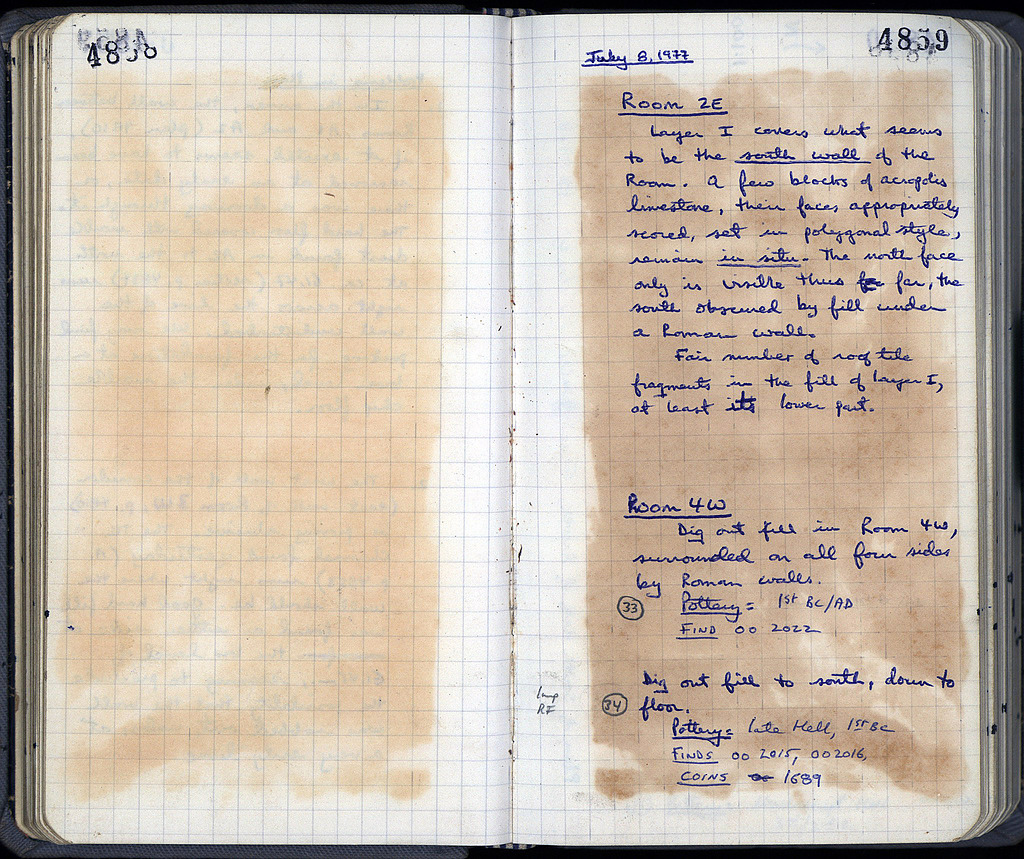 4858
4859
July 8, 1977
Room 2E
Layer I covers what seems
to be the south wall of the
Room. A few blocks of acropolis
limestone, their faces appropriately
scored, set in polygonal style,
remain in situ. The north face
only is visible thus far, the
south obscured by fill under
a Roman wall.
Fair number of roof tile
fragments in the fill of layer I,
at least its lower part.
Room 4W
Dig out fill in Room 4W,
surrounded on all four sides
by Roman walls.
33 Pottery = 1st BC/AD
FIND OO 2022
Dig out fill to south, down to
34 floor.
Pottery = late Hell, 1st BC
FINDS OO 2015, OO 2016,
COINS 1689
lamp
RF